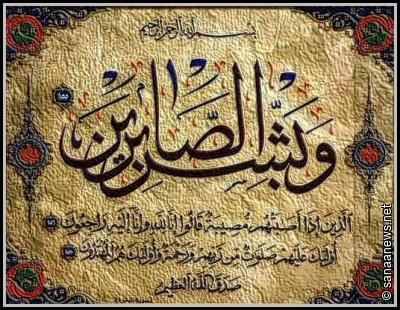 بسم الله الرحمن الرحيم
وبشر الصابرين ١٥٥
الذين إذا أصابتهم مصيبة قالوا إنا لله وإنا إليه راجعون ١٥٦
أولئك عليهم صلوات من ربهم ورحمة وأولئك هم المهتدون ١٥٧
صدق الله العظيم
© sanaanews.net